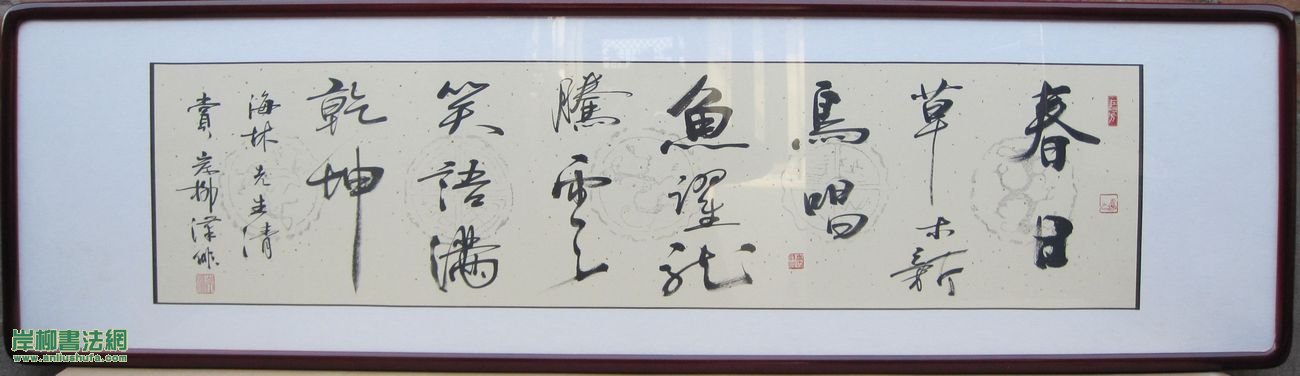 春日
草木新
鳥唱
魚躍龍
騰雲
笑語滿
乾坤
海林先生清
賞 岸柳
岸柳書法網
www.anliushufa.com